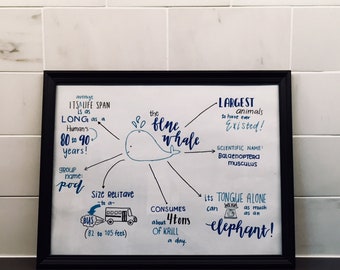 average
ITS LIFE SPAN
is as
LONG as a
Human's
80 to 90
years!
the
Blue
whale
LARGEST
animals
to have ever
Existed!
SCIENTIFIC NAME:
BALAENOPTERA
MUSCULUS
GROUP
NAME:
pod
SIZE RELITAVE
to a
BUS
(82 to 105 feet)
CONSUMES
about 4 tons
OF KRILL
a day.
its TONGUE ALONE
can
as much
as an
elephant!